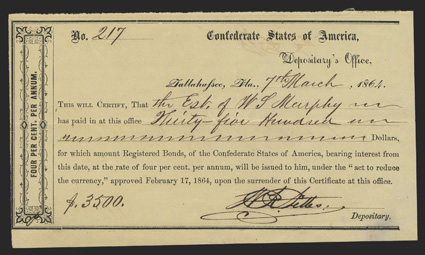 FOUR PER CENT. PER ANNUM.
No. 217 Confederate States of America,
Depositary's Office,
Tallahassee, Fla., 7th March, 1864.
THIS WILL CERTIFY, That the Est. of W S Murphy
has paid in at this office Hundred
Dollars,
for which amount Registered Bonds, of the Confederate States of America, bearing interest from
this date, at the rate of four per cent. per annum, will be issued to him, under the "act to reduce
the currency," approved February 17, 1864, upon the surrender of this Certificate at this office.
$. 3500.
Depositary.